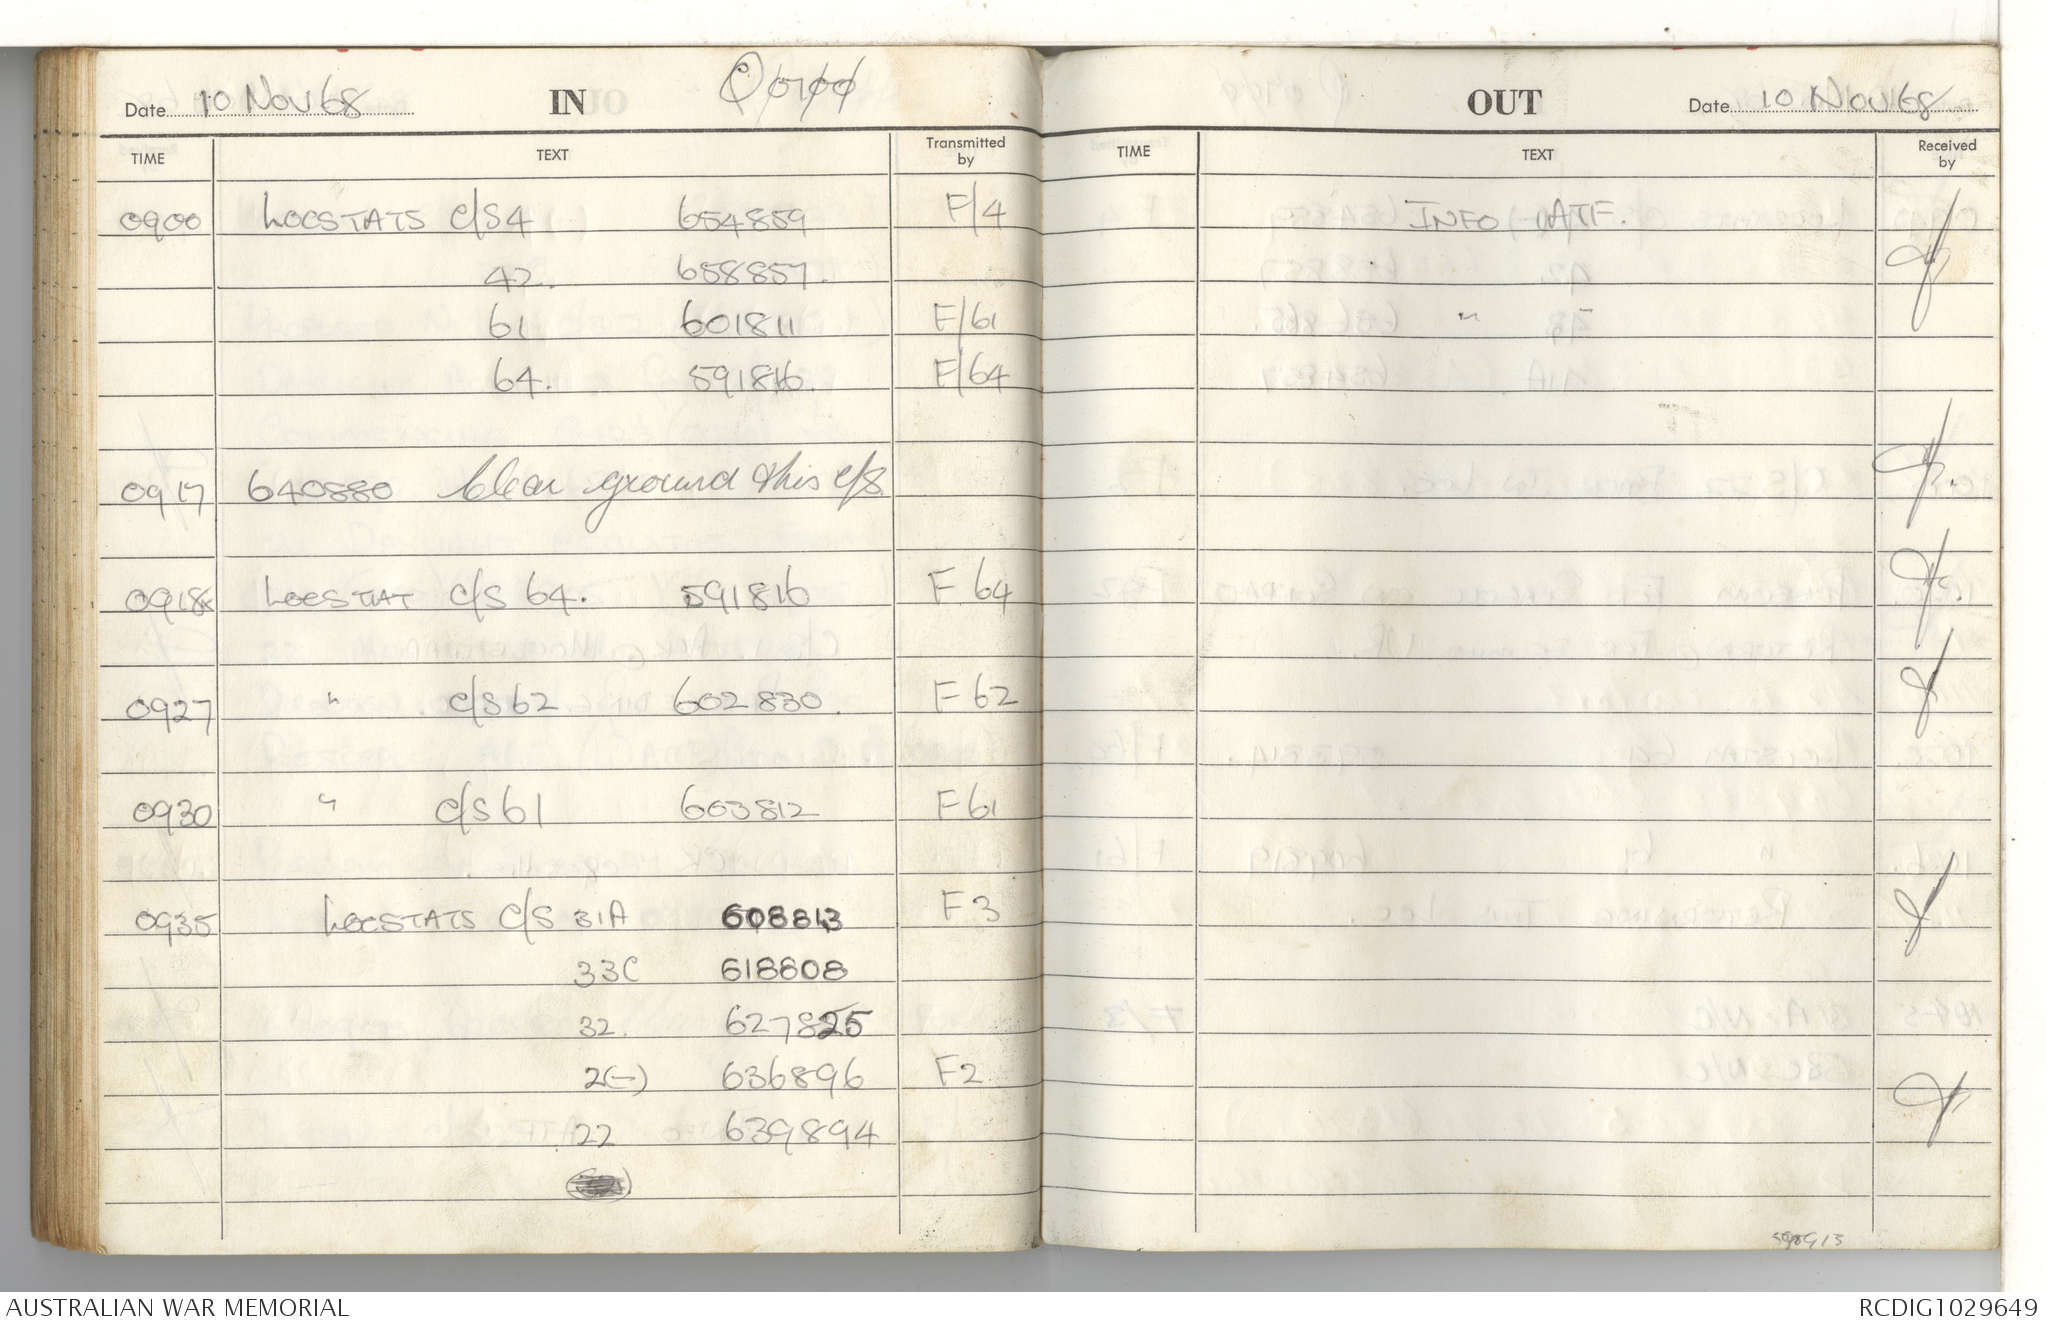 Date 10 Nov 68 IN
TIME TEXT Transmitted by
0900 LOCSTATS C/S 4 654859 F/4
42. 658857.
61 601811 F/61
64. 591816. F/64
0917 640880 Clear ground this c/s
0918 LOCSTAT C/S 64. 591816 F 64
0927 " C/S 62 602830. F 62
0930 " C/S 61 603812 F 61
0935 LOCSTATS C/S 31A 608813 F 3
33C 618808
32. 627825
2(-) 636896 F2
22 639894
OUT Date 10 Nov 68
TIME TEXT Received by
INFO - 1ATF.
"
598913
AUSTRALIAN WAR MEMORIAL RCDIG1029649